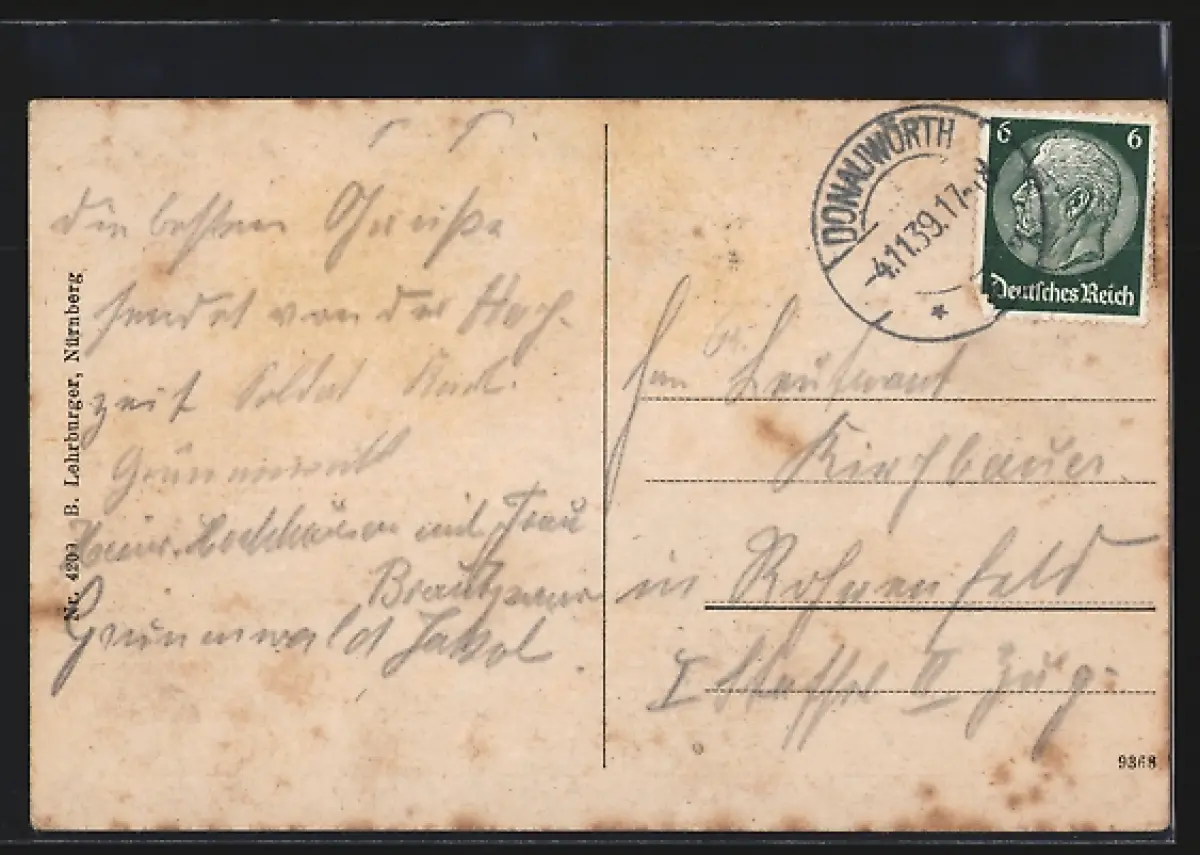 Die besten Grüße
sendet von der Hoch-
zeit Soldat
Grünenwald
mit Frau
Brautpaar
Grünenwald Jakob.
Nr. 4209 B. Lehrburger, Nürnberg
DONAUWÖRTH
-4.11.39.17-
6 6
Deutsches Reich
Herrn Leutnant
Kirchbauer.
in Rohrenfeld
I Staffel II Zug.
9368